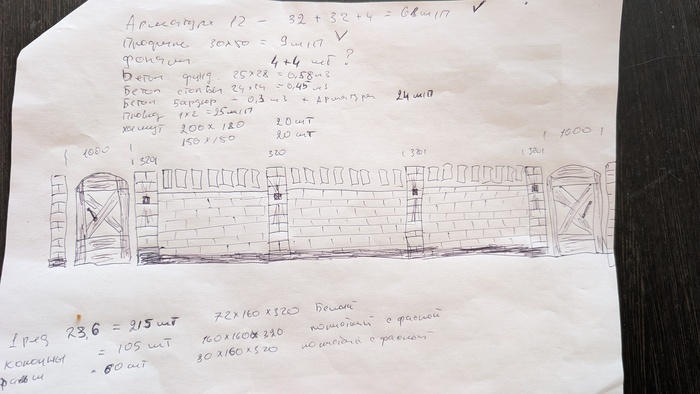 Арматура 12 - 32 + 32 + 4 = 68 м/п
Профиль 30х50 = 9 м/п
фонари 4+4 шт ?
Бетон фунд. 25х28 = 0,58 м3
Бетон столбы 24х24 = 0,45 м3
Бетон бардюр - 0,3 м3 + Арматура 24 м/п
Провод 1х2 = 25 м/п
хомут 200 х 180 20 шт
150 х 150 20 шт
1000 320 320 320 1000
1 ряд 23,6 = 215 шт 72х160х320 Белый
Колонны = 105 шт 160х160х320 полнотелый с фаской
60 шт 30х160х320 полнотелый с фаской